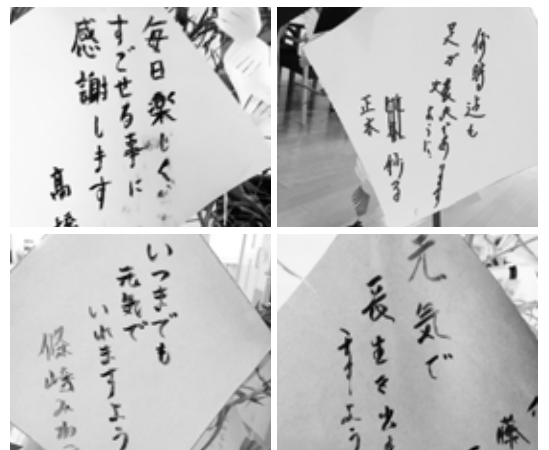 毎日楽しく
すごせる事に
感謝します
高
何時迄も
足が丈夫であります
ように
正木
いつまでも
元気で
いれますよう
篠崎み
元気で
長生き出き
ますよう
藤